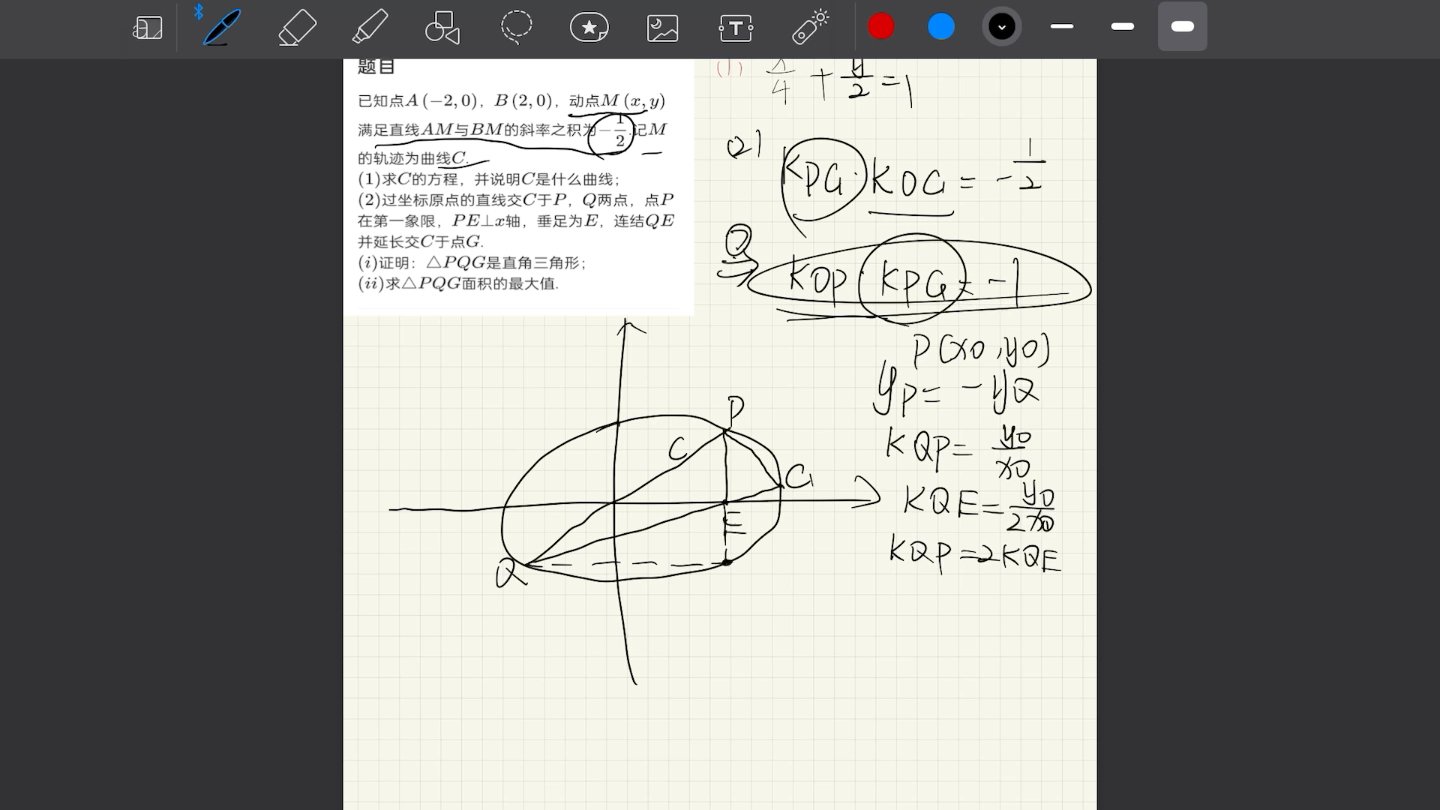 题目
已知点A(−2,0)，B(2,0)，动点M(x,y)
满足直线AM与BM的斜率之积为−1/2.记M
的轨迹为曲线C.
(1)求C的方程，并说明C是什么曲线；
(2)过坐标原点的直线交C于P，Q两点，点P
在第一象限，PE⊥x轴，垂足为E，连结QE
并延长交C于点G.
(i)证明：△PQG是直角三角形；
(ii)求△PQG面积的最大值.
(1) x/4 + y/2 = 1
(2) KPG · KOG = -1/2
KOP · KPG = -1
P(x0,y0)
yP = -yQ
KQP = y0/x0
KQE = y0/2x0
KQP = 2KQE
P
C
G
E
Q
T